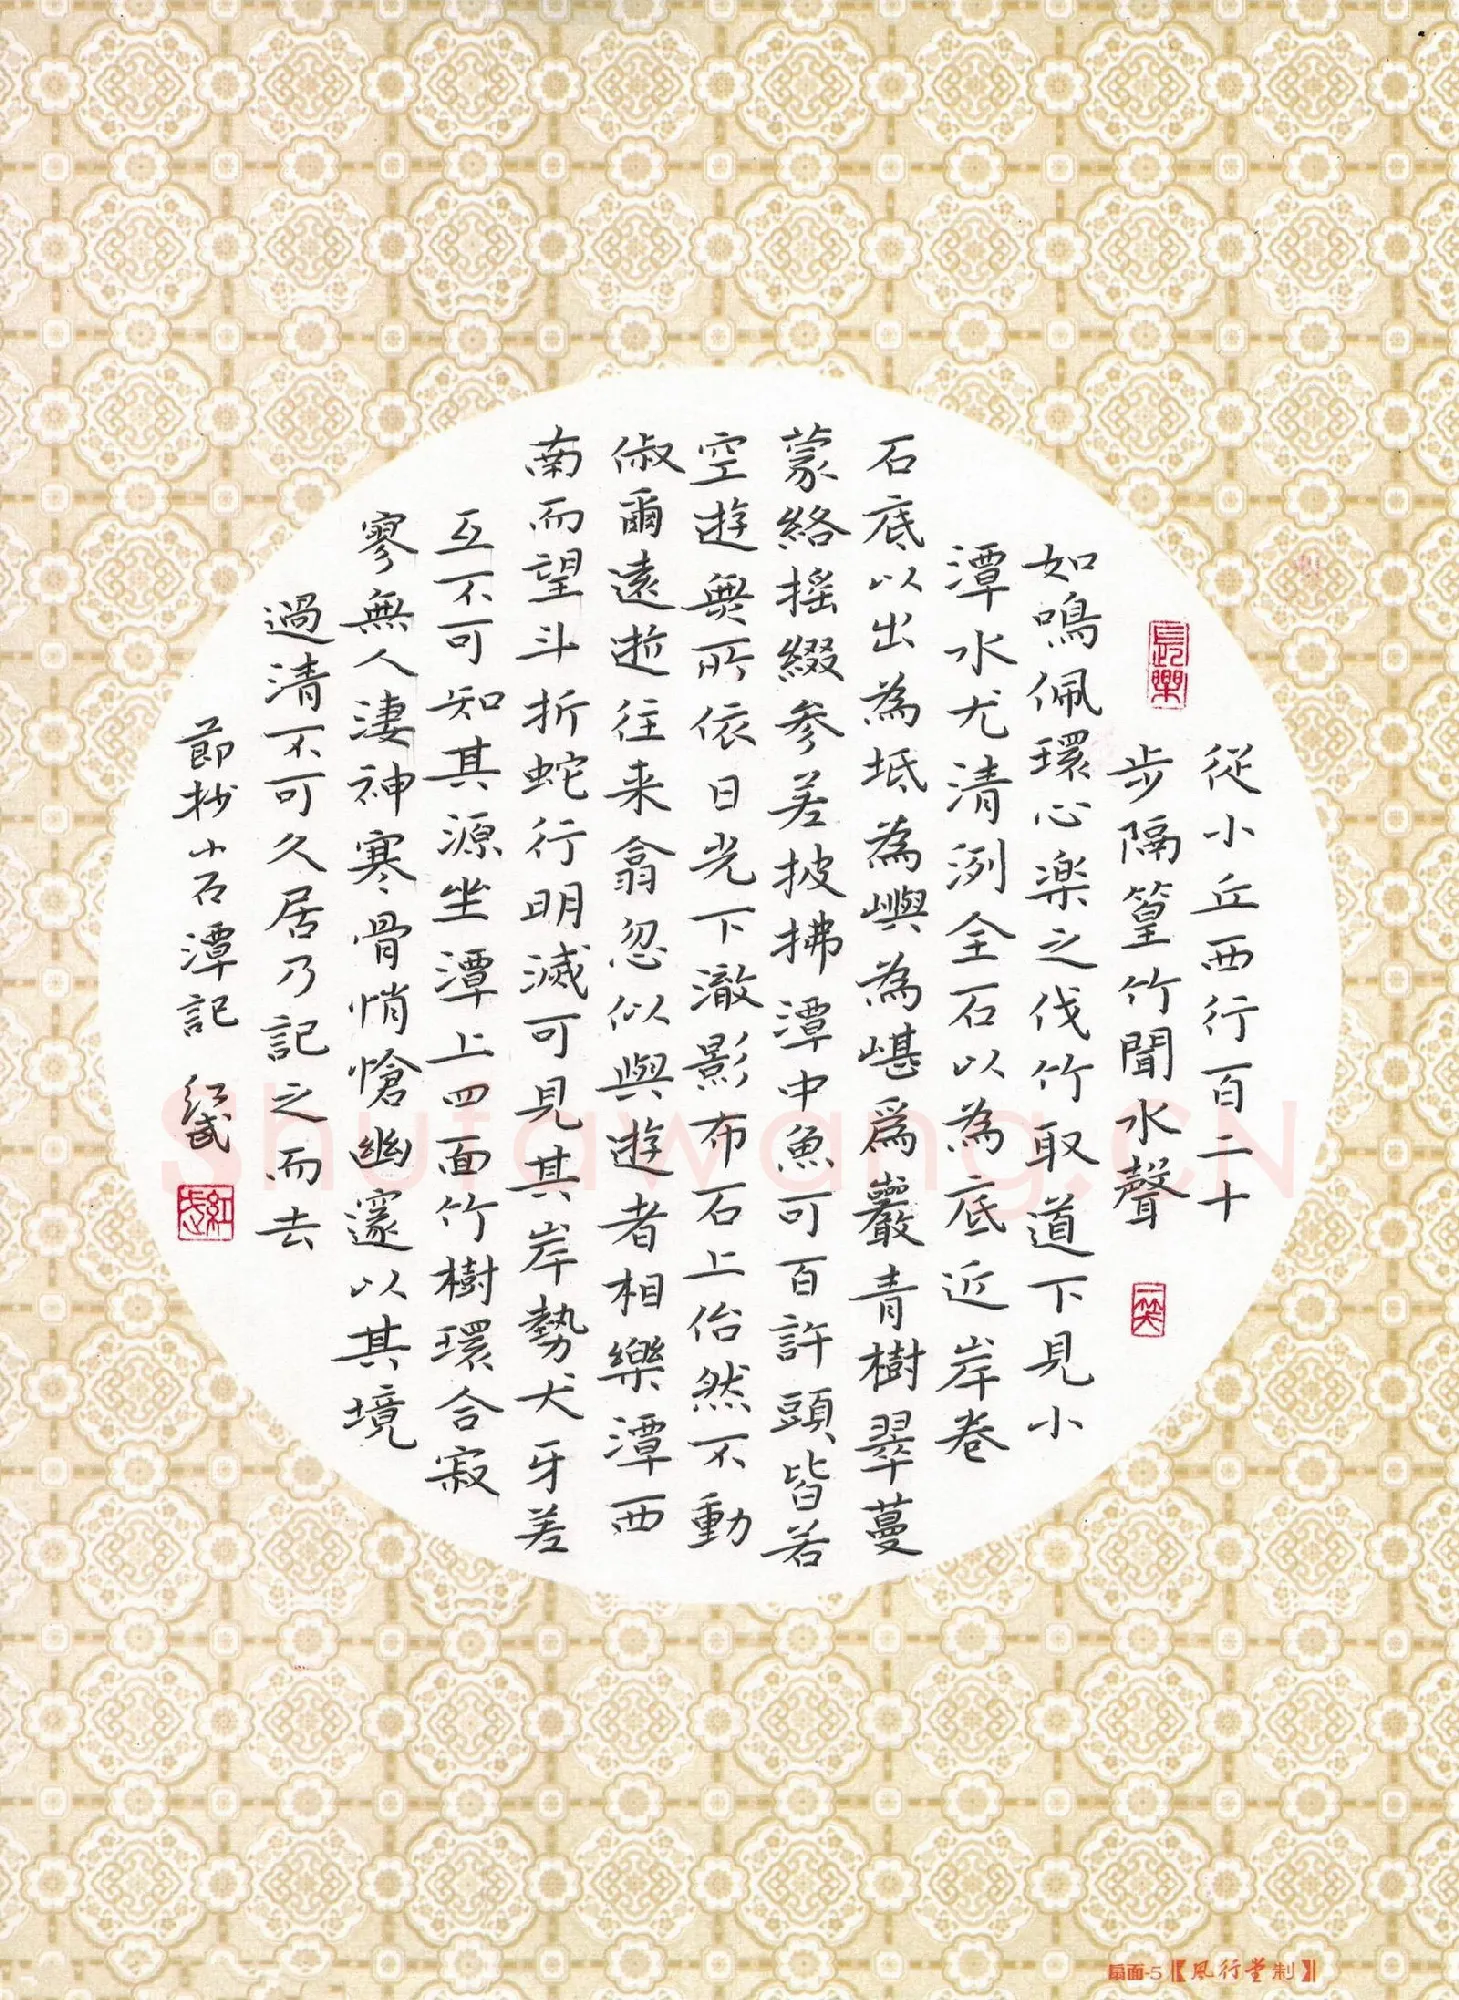 從小丘西行百二十
步隔篁竹聞水聲
如鳴佩環心楽之伐竹取道下見小
潭水尤清洌全石以為底近岸卷
石底以出為坻為嶼為嵁爲巖青樹翠蔓
蒙絡搖綴参差披拂潭中魚可百許頭皆若
空遊無所依日光下澈影布石上佁然不動
俶爾遠逝往来翕忽似與遊者相樂潭西
南而望斗折蛇行明滅可見其岸勢犬牙差
互不可知其源坐潭上四面竹樹環合寂
寥無人淒神寒骨悄愴幽邃以其境
過清不可久居乃記之而去
節抄小石潭記
長樂
一笑
shufawang.cn
扇面-5【風行堂制】